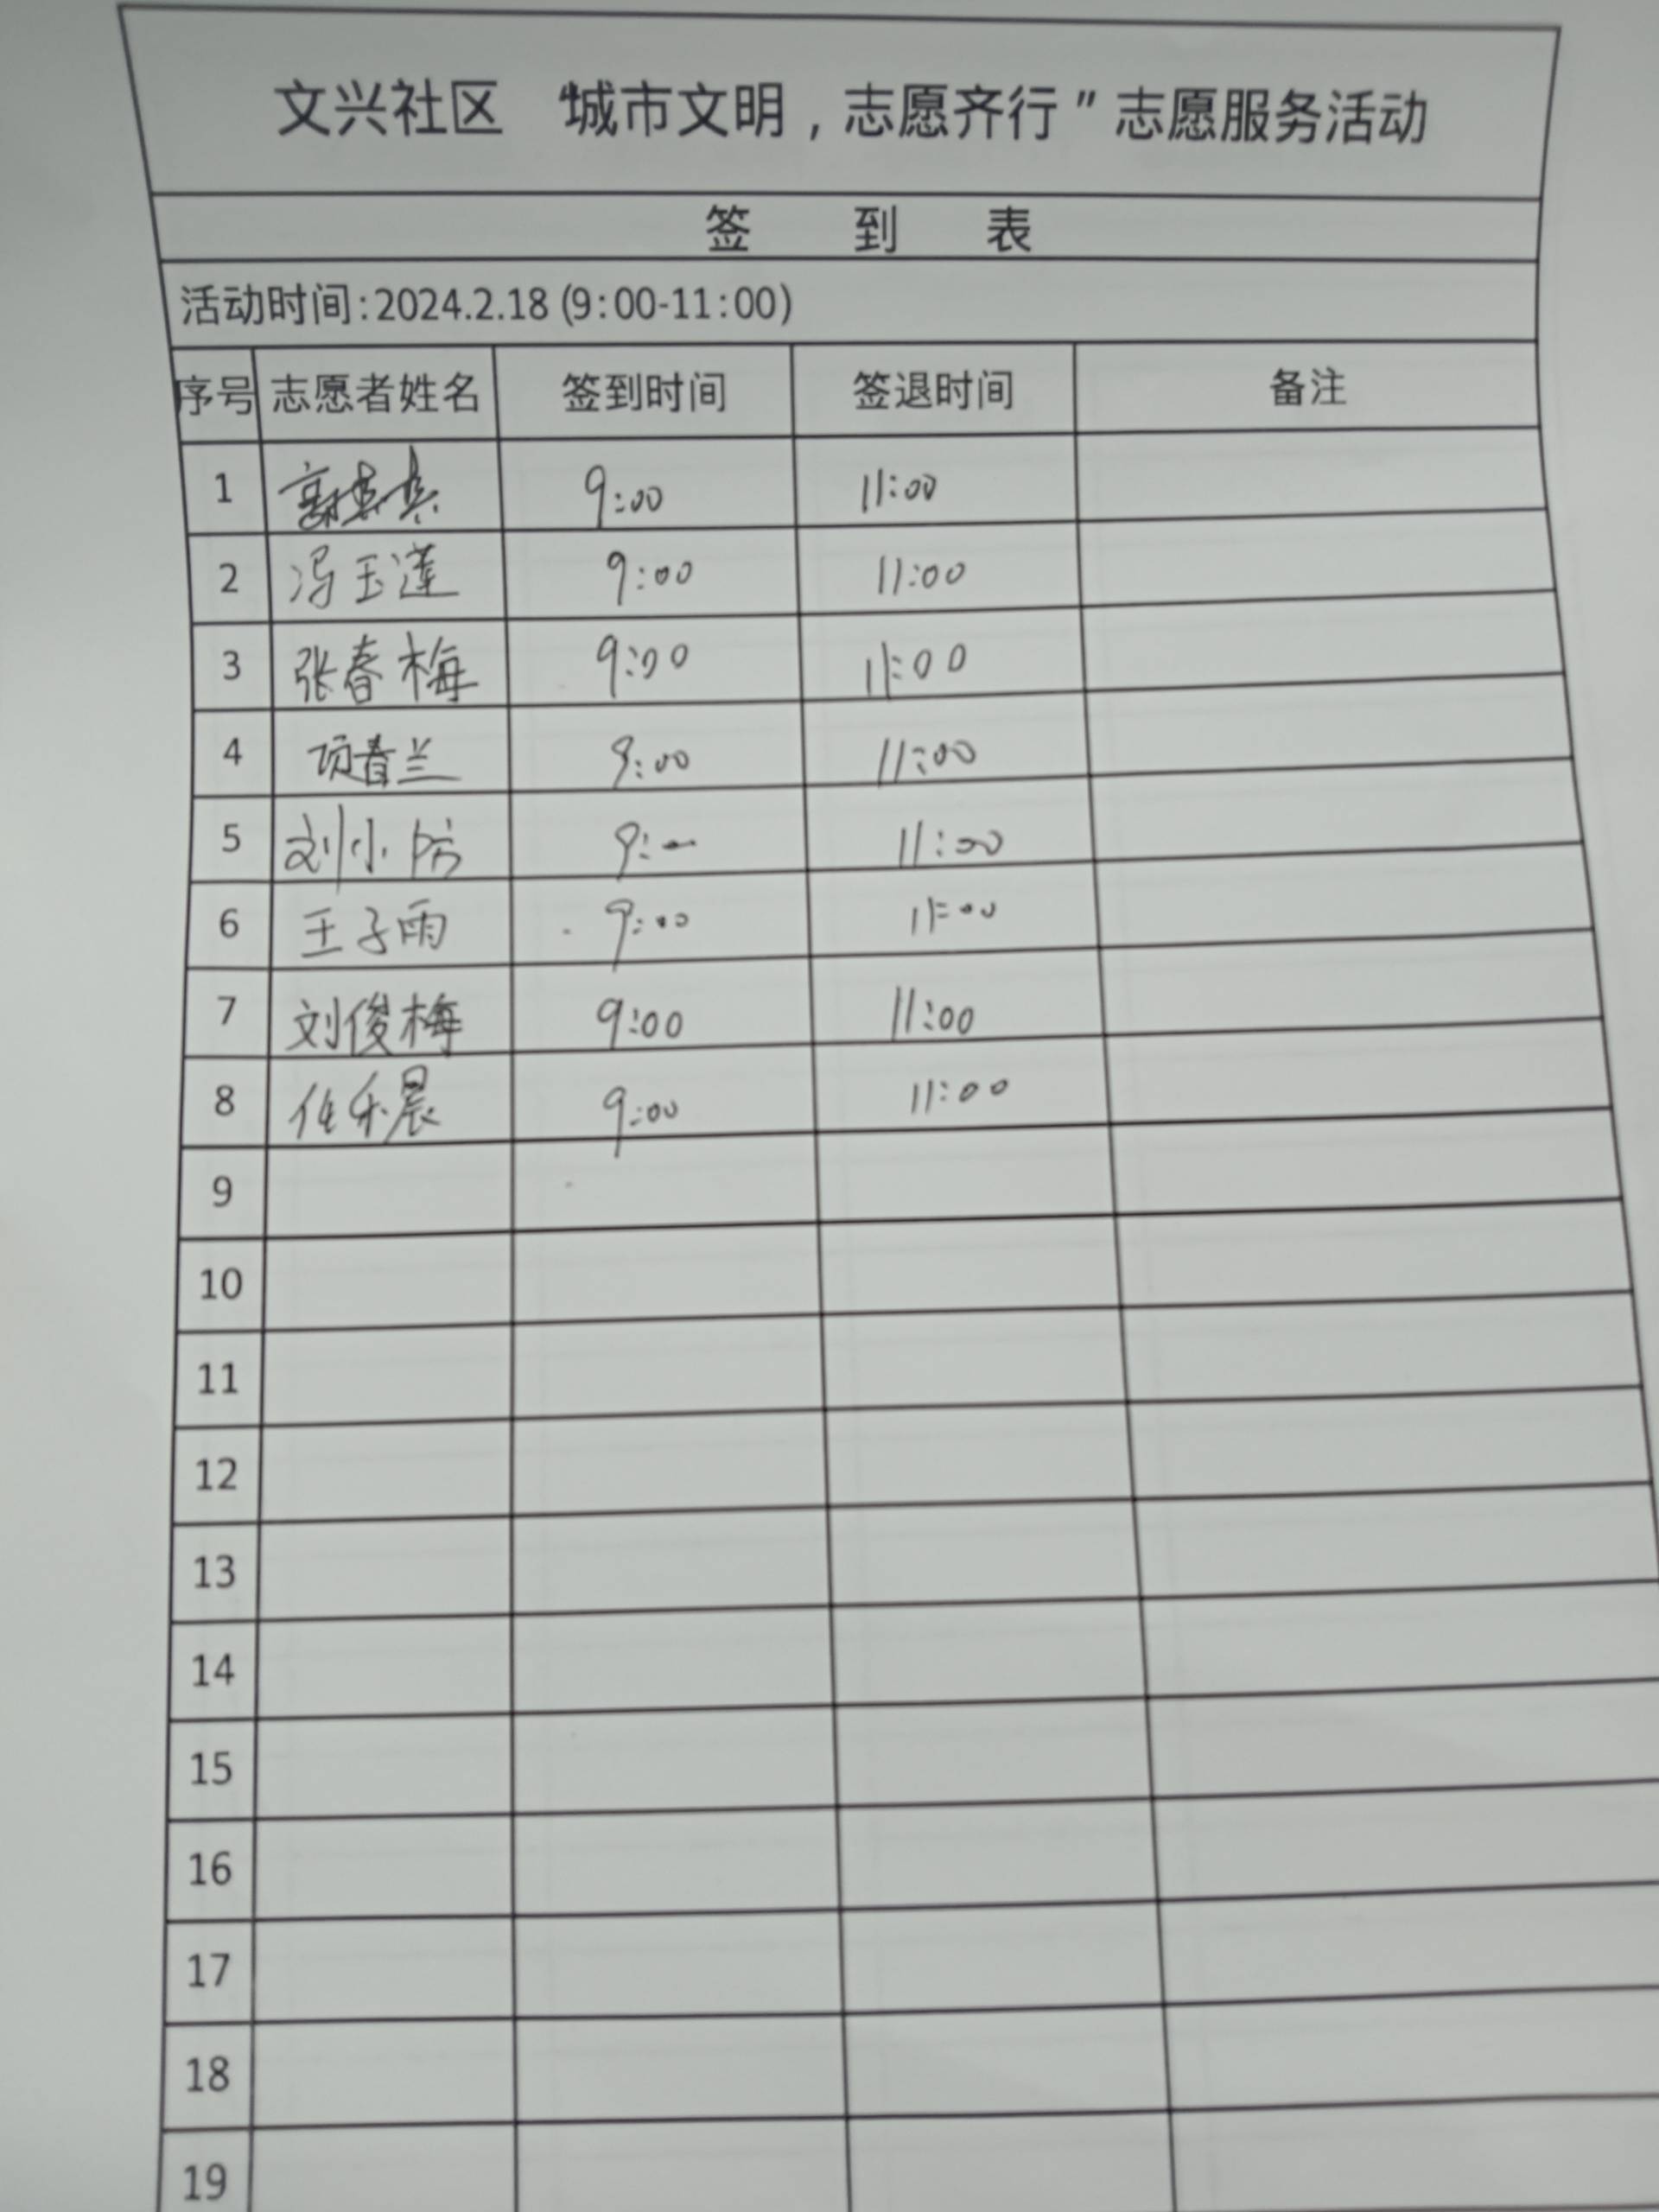 文兴社区 “城市文明，志愿齐行”志愿服务活动
签 到 表
活动时间:2024.2.18 (9:00-11:00)
序号 志愿者姓名 签到时间 签退时间 备注
1 9:00 11:00
2 冯玉莲 9:00 11:00
3 张春梅 9:00 11:00
4 项春兰 9:00 11:00
5 刘小防 9: 11:00
6 王子雨 9:00 11:00
7 刘俊梅 9:00 11:00
8 任乐晨 9:00 11:00
9
10
11
12
13
14
15
16
17
18
19